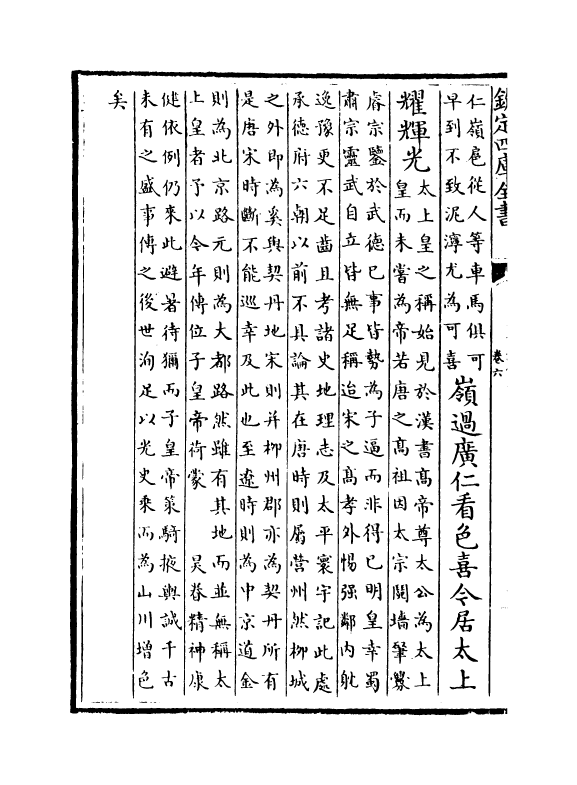 欽定四庫全書
卷六
仁嶺扈從人等車馬俱可
早到不致泥濘尤為可喜
嶺過廣仁看色喜今居太上
耀輝光
太上皇之稱始見於漢書髙帝尊太公為太上
皇而未嘗為帝若唐之髙祖因太宗鬩墻肇釁
睿宗鑒於武徳已事皆勢為子逼而非得已明皇幸蜀
肅宗靈武自立皆無足稱迨宋之髙孝外惕强鄰内躭
逸豫更不足齒且考諸史地理志及太平寰宇記此處
承徳府六朝以前不具論其在唐時則屬營州然柳城
之外即為奚與契丹地宋則并柳州郡亦為契丹所有
是唐宋時斷不能巡幸及此也至遼時則為中京道金
則為北京路元則為大都路然雖有其地而並無稱太
上皇者予以今年傳位子皇帝荷蒙　昊眷精神康
健依例仍來此避暑待獮而子皇帝策騎掖輿誠千古
未有之盛事傳之後世洵足以光史乘而為山川增色
矣